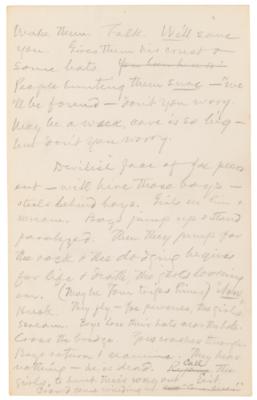 Wake them. Talk. We'll save
you. Gives them his crust &
some bats.
People hunting them sure - "we
'll be found - don't you worry.
May be a week, cave is so big -
but don't you worry.
Devilish face of Joe peers
out - will have those boys -
steals behind boys. Girls see him &
scream. Boys jump up & stand
paralyzed. Then they jump for
the rock & the dodging begins
for life & death, the girls looking
on. (Maybe Tom trips him.) "Now
Huck. They fly - Joe pursues, the girls
scream. Boys lose their hats over the hole.
Cross the bridge. Joe crashes through.
Boys return & examine. They hear
nothing - he is dead. Call The
girls, to hunt their way out.